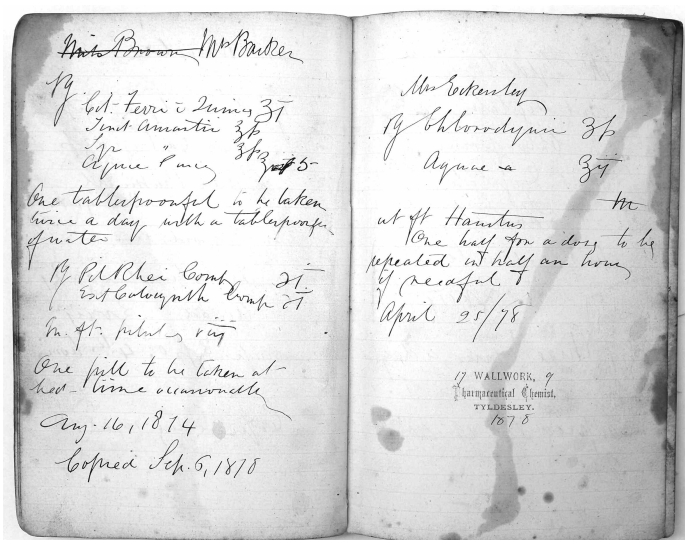 Miss Brown Mrs Barker
Rx
Cit Ferri c Quin ʒi
Tinct Aurantii ℥ss
Syr ℥ss
Aquae Pura ℥ 5
One tablespoonful to be taken
twice a day with a tablespoonful
of water
Rx Pil Rhei Comp ℈i
Ext Colocynth Comp ℈i
M. ft. pilul viij
One pill to be taken at
bed-time occasionally
Aug. 16, 1874
Copied Sep. 6, 1878
Mrs Eckersley
Rx Chlorodynii ʒss
Aquae ℥ij
M
ut ft Haustus
One half for a dose to be
repeated in half an hour
if needful
April 25/78
17 WALLWORK, 9
Pharmaceutical Chemist,
TYLDESLEY.
1878